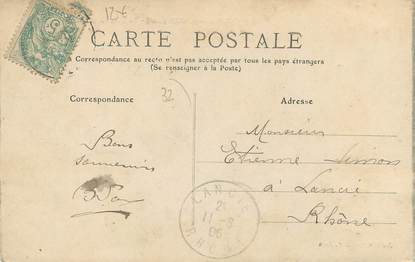 12 €
CARTE POSTALE
La Correspondance au recto n'est pas acceptée par tous les pays étrangers
(Se renseigner à la Poste)
Correspondance
Adresse
32
Bons
souvenirs
Monsieur
Etienne Simon
à Lancié
Rhône
LANCIÉ
21
11 -8
06
RHONE